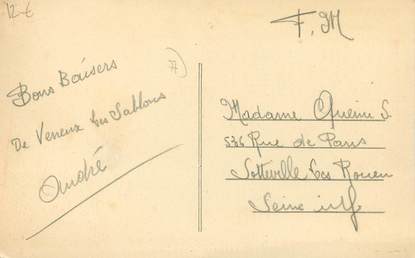 12-€
F.M
77
Bons Baisers
De Veneux Les Sablons
André
Madame S.
536 Rue de Paris
Sotteville Les Rouen
Seine inf